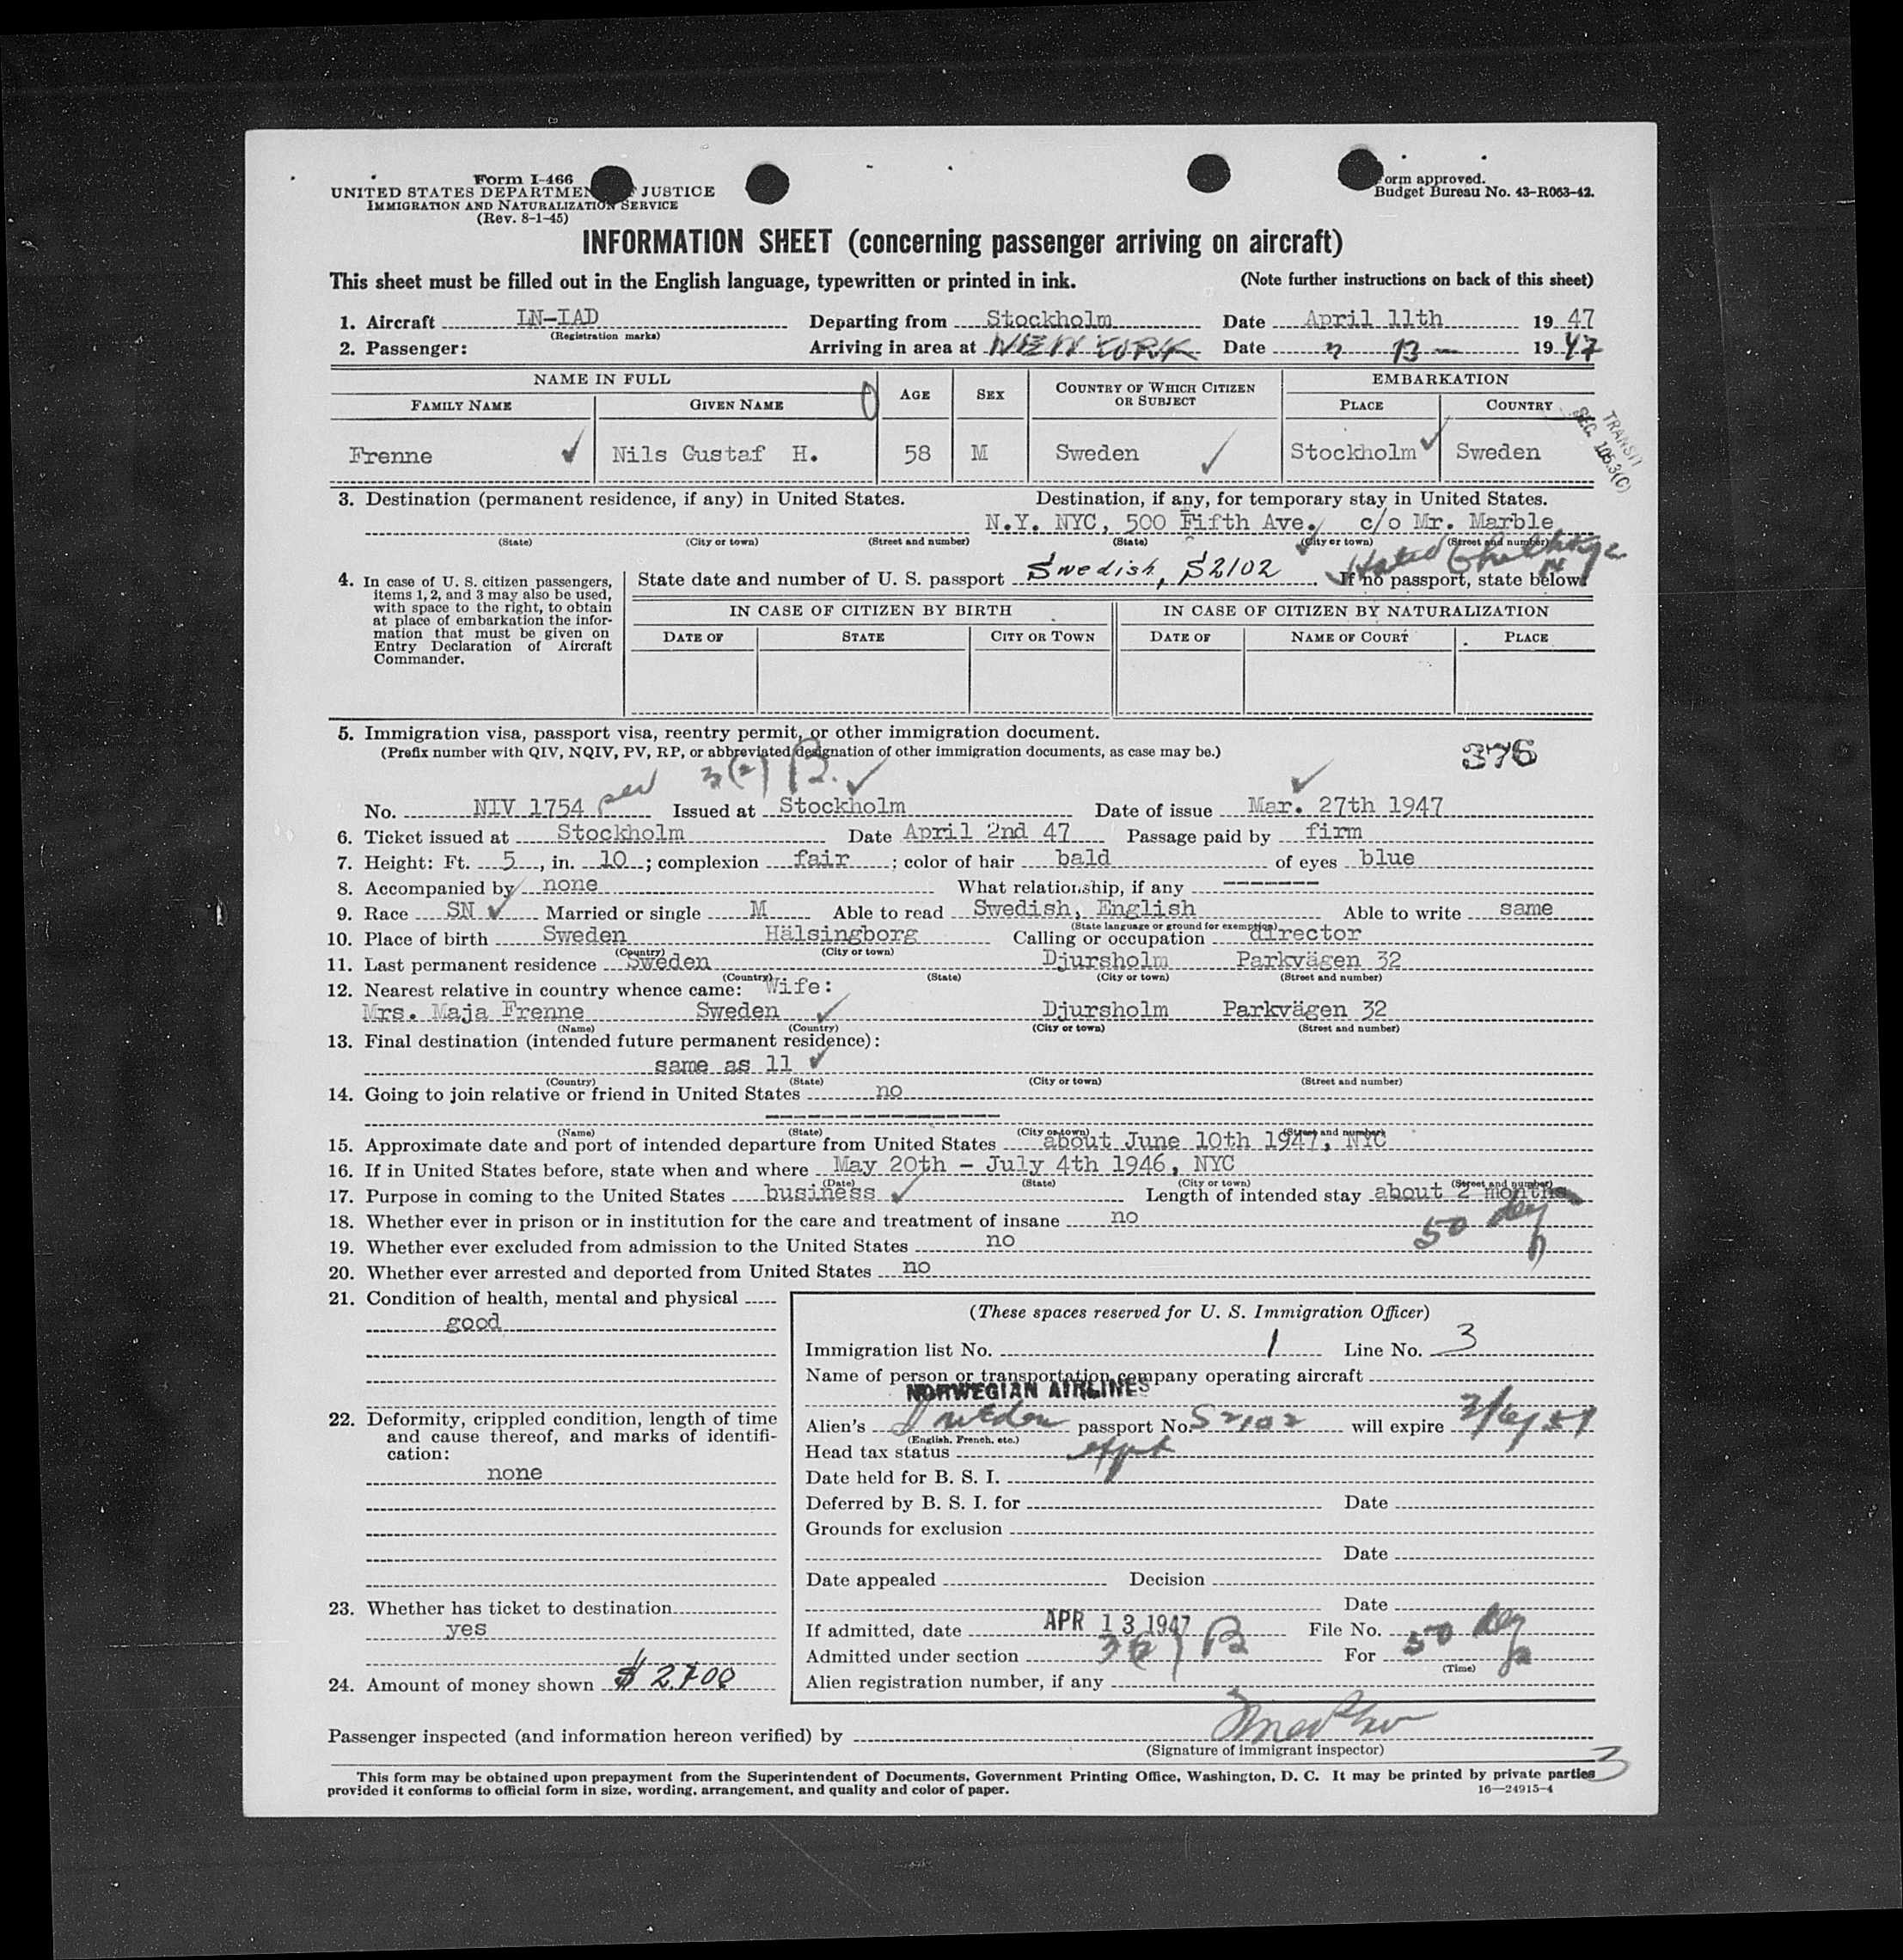 Form I-466
UNITED STATES DEPARTMENT JUSTICE
IMMIGRATION AND NATURALIZATION SERVICE
(Rev. 8-1-45)
orm approved.
Budget Bureau No. 43-R063-42.
INFORMATION SHEET (concerning passenger arriving on aircraft)
This sheet must be filled out in the English language, typewritten or printed in ink. (Note further instructions on back of this sheet)
1. Aircraft LN-IAD Departing from Stockholm Date April 11th 19 47
(Registration marks)
2. Passenger: Arriving in area at NEW YORK Date " 13 — 19 47
NAME IN FULL AGE SEX COUNTRY OF WHICH CITIZEN OR SUBJECT EMBARKATION
FAMILY NAME GIVEN NAME PLACE COUNTRY
TRANSIT
SEC. 105.3(C)
Frenne Nils Gustaf H. 58 M Sweden Stockholm Sweden
3. Destination (permanent residence, if any) in United States. Destination, if any, for temporary stay in United States.
N.Y. NYC, 500 Fifth Ave. c/o Mr. Marble
(State) (City or town) (Street and number) (State) (City or town) (Street and number)
4. In case of U. S. citizen passengers, items 1, 2, and 3 may also be used, with space to the right, to obtain at place of embarkation the information that must be given on Entry Declaration of Aircraft Commander.
State date and number of U. S. passport Swedish, S2102 If no passport, state below:
IN CASE OF CITIZEN BY BIRTH IN CASE OF CITIZEN BY NATURALIZATION
DATE OF STATE CITY OR TOWN DATE OF NAME OF COURT PLACE
5. Immigration visa, passport visa, reentry permit, or other immigration document.
(Prefix number with QIV, NQIV, PV, RP, or abbreviated designation of other immigration documents, as case may be.)
376
3(2) B.
No. NIV 1754 Issued at Stockholm Date of issue Mar. 27th 1947
6. Ticket issued at Stockholm Date April 2nd 47 Passage paid by firm
7. Height: Ft. 5, in. 10; complexion fair; color of hair bald of eyes blue
8. Accompanied by none What relationship, if any -------
9. Race SN Married or single M Able to read Swedish, English Able to write same
(State language or ground for exemption)
10. Place of birth Sweden Hälsingborg Calling or occupation director
(Country) (City or town)
11. Last permanent residence Sweden Djursholm Parkvägen 32
(Country) (State) (City or town) (Street and number)
12. Nearest relative in country whence came: Wife:
Mrs. Maja Frenne Sweden Djursholm Parkvägen 32
(Name) (Country) (City or town) (Street and number)
13. Final destination (intended future permanent residence):
same as 11
(Country) (State) (City or town) (Street and number)
14. Going to join relative or friend in United States no
-----------------
(Name) (State) (City or town) (Street and number)
15. Approximate date and port of intended departure from United States about June 10th 1947, NYC
16. If in United States before, state when and where May 20th - July 4th 1946, NYC
(Date) (State) (City or town) (Street and number)
17. Purpose in coming to the United States business Length of intended stay about 2 months
50
18. Whether ever in prison or in institution for the care and treatment of insane no
19. Whether ever excluded from admission to the United States no
20. Whether ever arrested and deported from United States no
21. Condition of health, mental and physical
good
22. Deformity, crippled condition, length of time and cause thereof, and marks of identification:
none
23. Whether has ticket to destination
yes
24. Amount of money shown
(These spaces reserved for U. S. Immigration Officer)
Immigration list No. 1 Line No. 3
Name of person or transportation company operating aircraft
NORWEGIAN AIRLINES
Alien's Sweden passport No. S2102 will expire
(English, French, etc.)
Head tax status
Date held for B. S. I.
Deferred by B. S. I. for Date
Grounds for exclusion
Date
Date appealed Decision
Date
If admitted, date APR 13 1947 File No.
Admitted under section 3(2) B For 50
(Time)
Alien registration number, if any
Passenger inspected (and information hereon verified) by
(Signature of immigrant inspector)
3
This form may be obtained upon prepayment from the Superintendent of Documents, Government Printing Office, Washington, D. C. It may be printed by private parties
provided it conforms to official form in size, wording, arrangement, and quality and color of paper. 16—24915-4